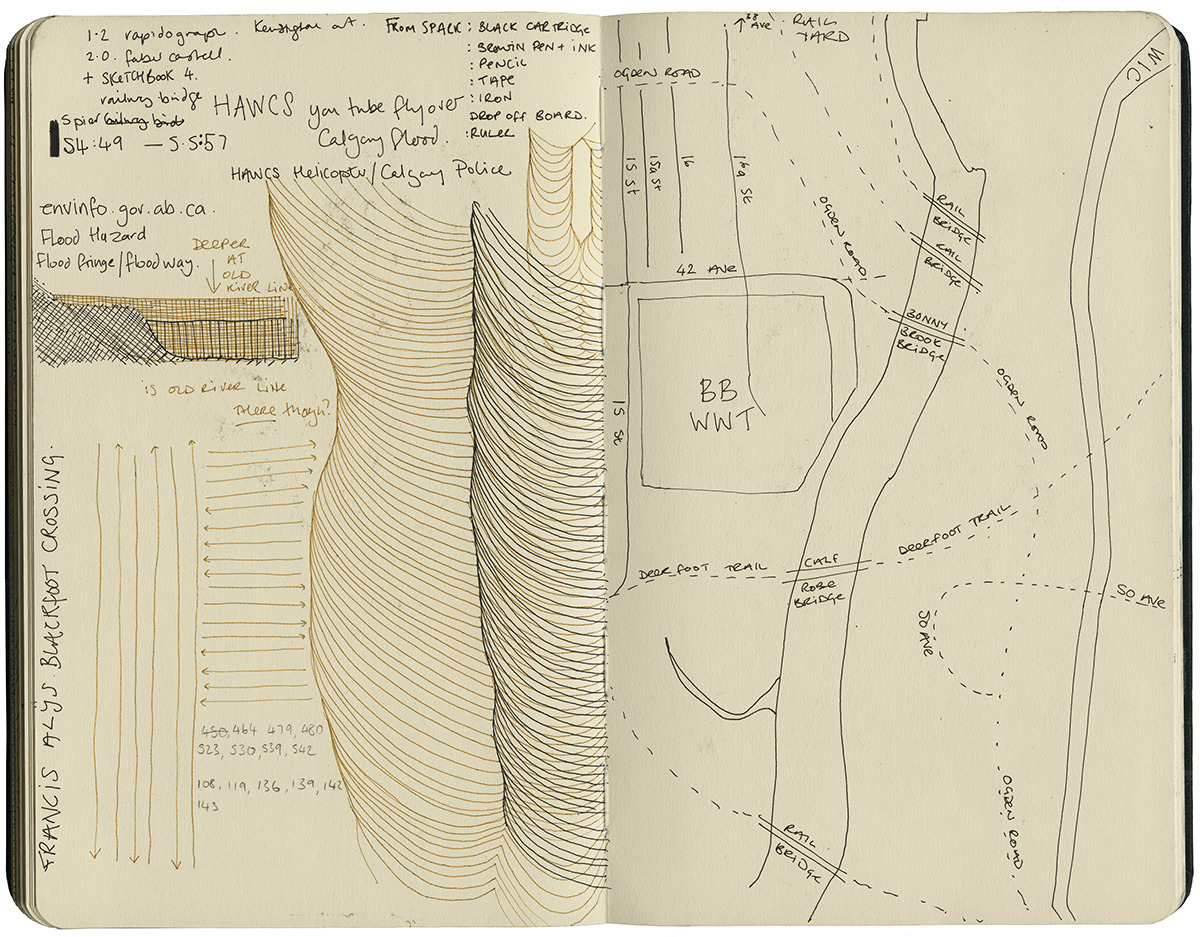 1.2 rapidograph.
2.0. faber castell.
+ SKETCHBOOK 4.
railway bridge
Spier railway bird
54:49 — 5.5:57
Kensington art.
FROM SPARK : BLACK CARTRIDGE
: BROWN PEN + INK
: PENCIL
: TAPE
: IRON
DROP OFF BOARD.
: RULER
HAWCS you tube fly over
Calgary flood.
HAWCS Helicopter/Calgary Police
envinfo.gov.ab.ca.
Flood Hazard
Flood fringe/floodway.
DEEPER
AT
OLD
RIVER LINE.
IS OLD RIVER LINE
THERE though?
FRANCIS ALŸS. BLACKFOOT CROSSING.
450, 464 479, 480
523, 530, 539, 542
108, 119, 136, 139, 142
143
↑ 38 AVE
RAIL
YARD
WIC
OGDEN ROAD
15 St
15a St
16
16a St
RAIL
BRIDGE
RAIL
BRIDGE
OGDEN ROAD
42 AVE
BONNY
BROOK
BRIDGE
OGDEN ROAD
BB
WWT
15 St
DEERFOOT TRAIL
CALF
ROBE
BRIDGE
DEERFOOT TRAIL
50 AVE
50 AVE
OGDEN ROAD
RAIL
BRIDGE